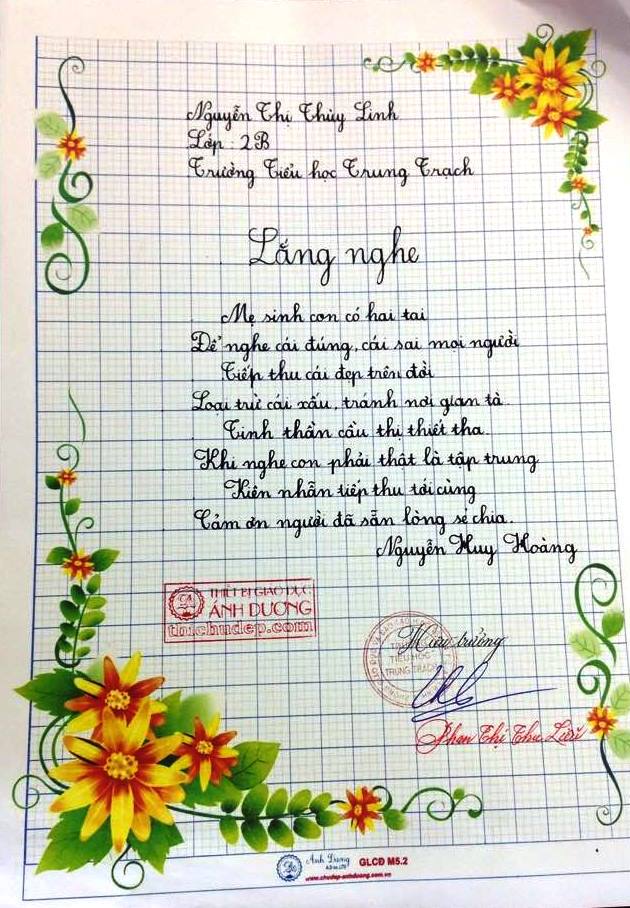 Nguyễn Thị Thùy Linh
Lớp : 2B
Trường Tiểu học Trung Trạch
Lắng nghe
Mẹ sinh con có hai tai
Để nghe cái đúng, cái sai mọi người
Tiếp thu cái đẹp trên đời
Loại trừ cái xấu, tránh nơi gian tà.
Tinh thần cầu thị thiết tha.
Khi nghe con phải thật là tập trung
Kiên nhẫn tiếp thu tới cùng
Cảm ơn người đã sẵn lòng sẻ chia.
Nguyễn Huy Hoàng
THIẾT BỊ GIÁO DỤC
ÁNH DƯƠNG
thichvdep.com
Hiệu trưởng
TIỂU HỌC
TRUNG TRẠCH
Phan Thị Thu
Ánh Dương
GLCĐ M5.2
www.chudep-anhduong.com.vn